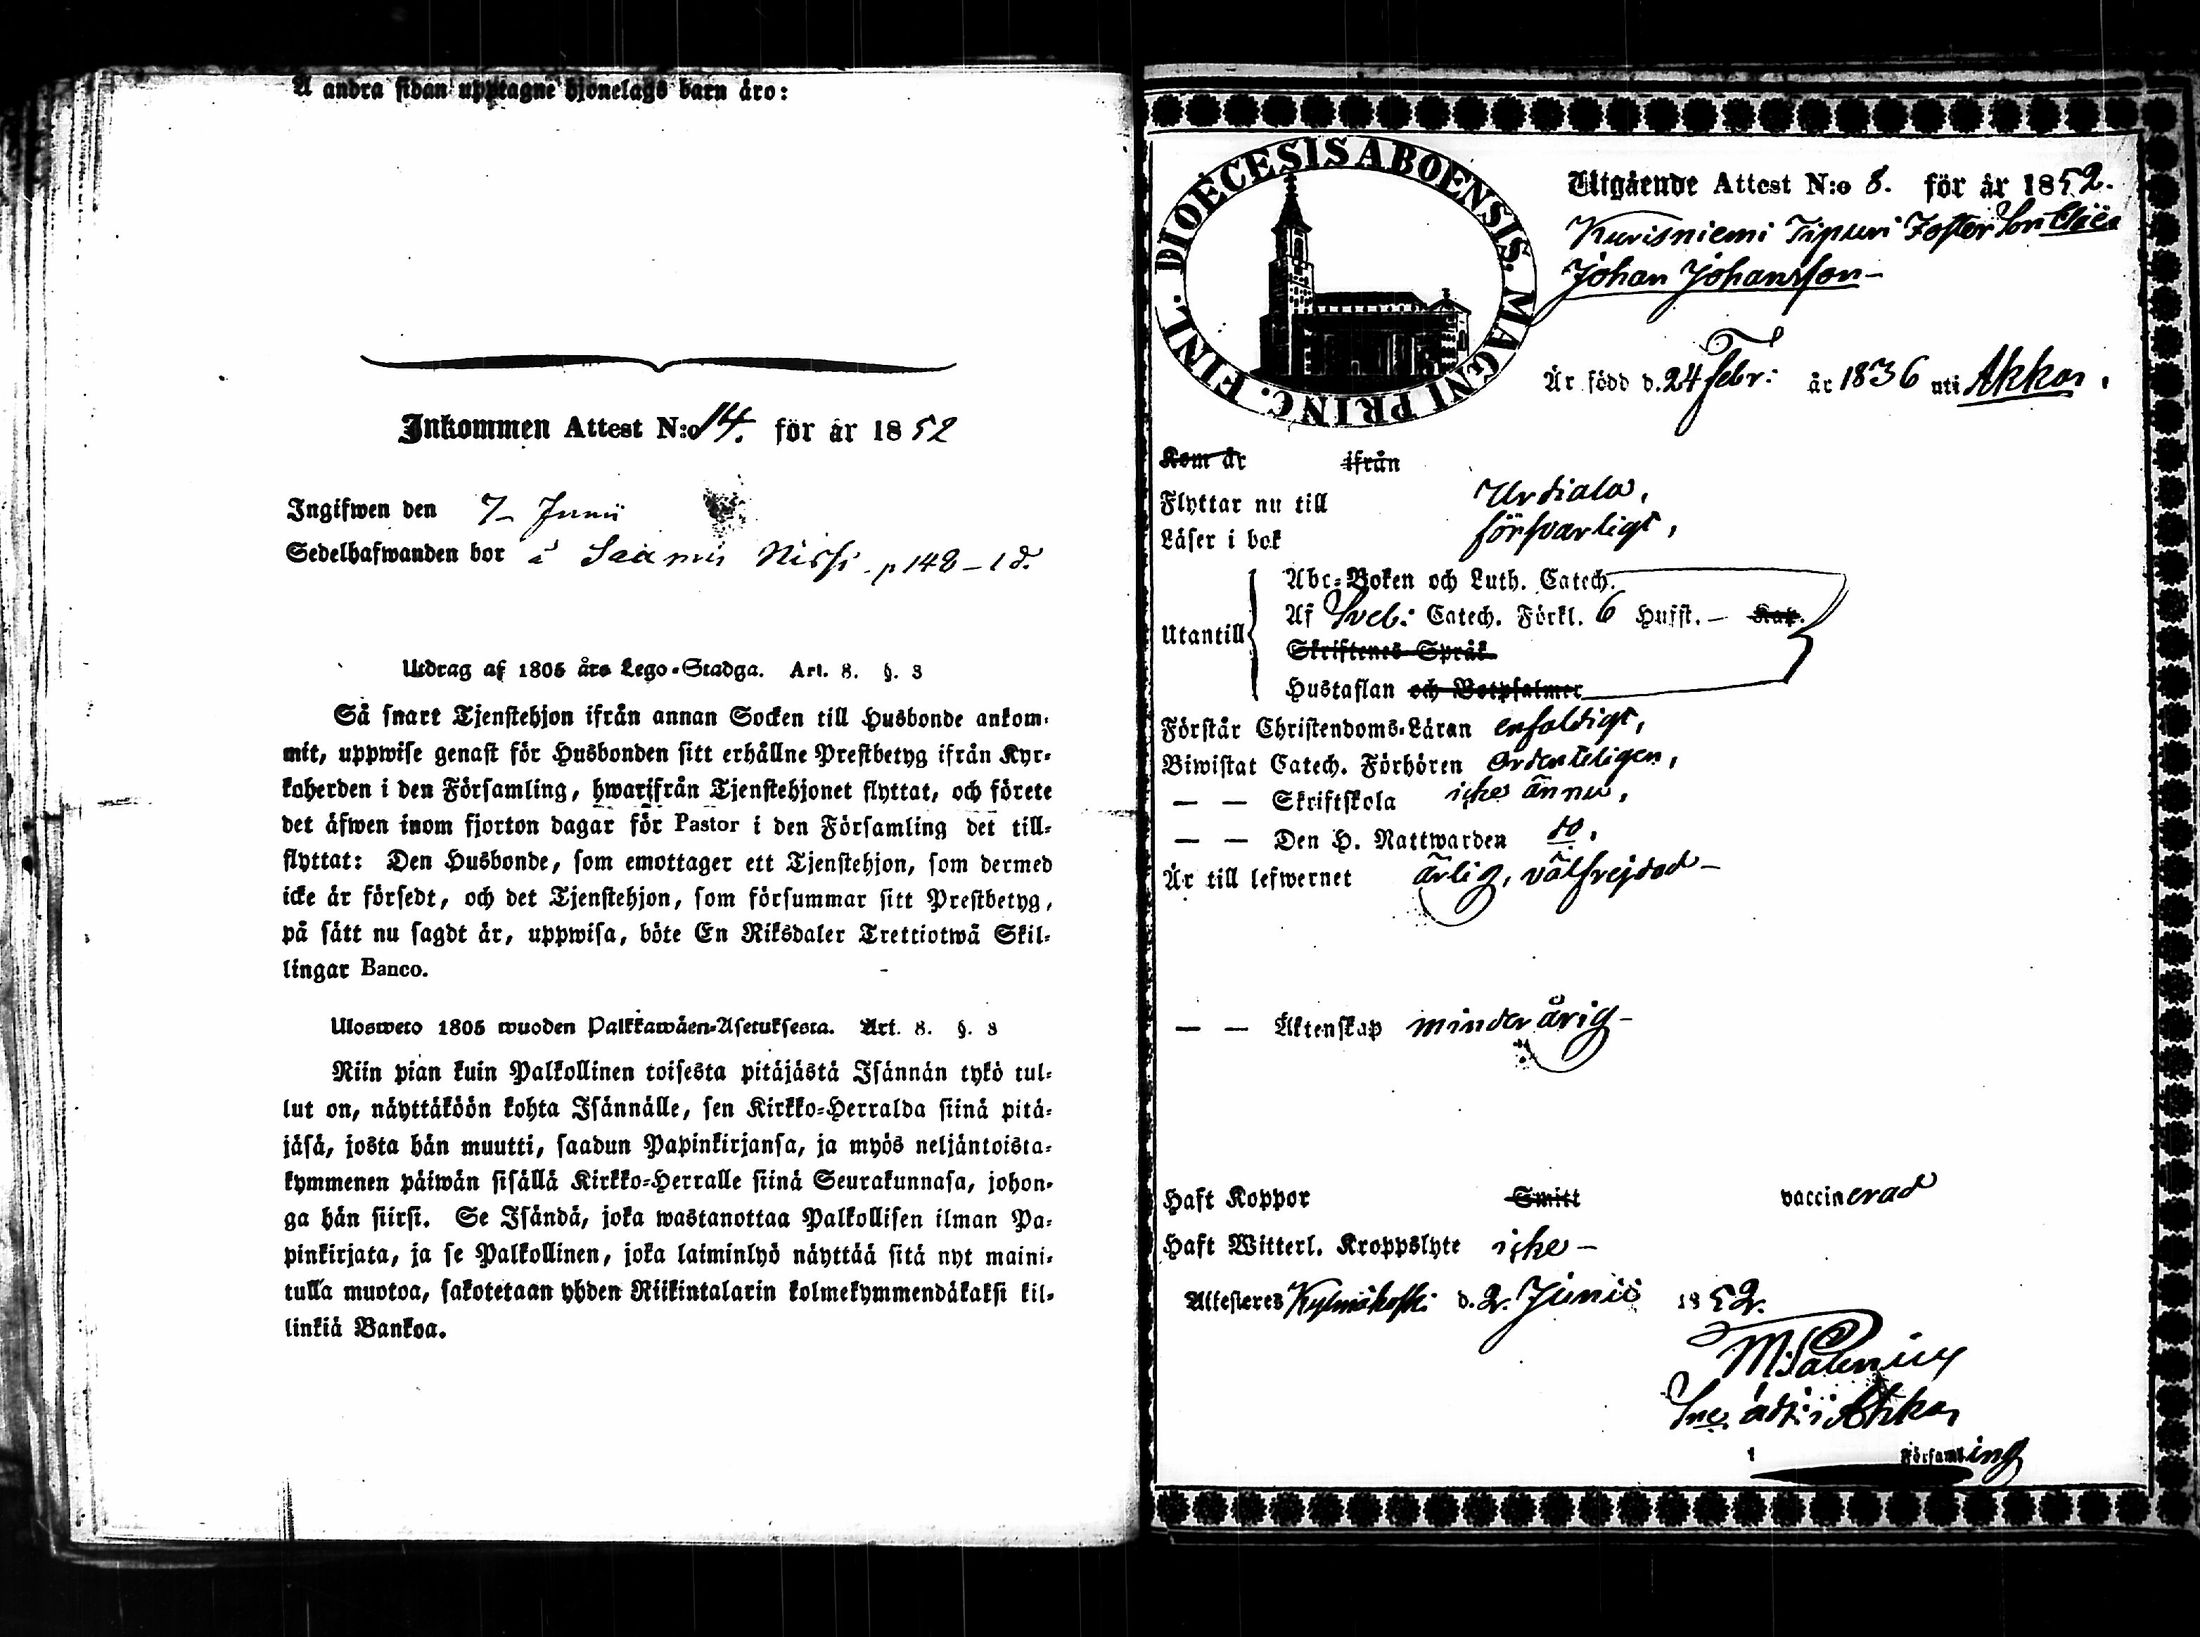 Å andra sidan upptagne hjonelags barn äro:
Inkommen Attest N:o 14. för år 1852
Ingifwen den 7 Junii
Sedelhafwanden bor å Nissi p 148 - 1 d.
Utdrag af 1805 års Lego-Stadga. Art. 8. §. 3
Så snart Tjenstehjon ifrån annan Socken till Husbonde ankom-
mit, uppwise genast för Husbonden sitt erhållne Prestbetyg ifrån Kyr-
koherden i den Församling, hwarifrån Tjenstehjonet flyttat, och förete
det äfwen inom fjorton dagar för Pastor i den Församling det till-
flyttat: Den Husbonde, som emottager ett Tjenstehjon, som dermed
icke är försedt, och det Tjenstehjon, som försummar sitt Prestbetyg,
på sätt nu sagdt är, uppwisa, böte En Riksdaler Trettiotwå Skil-
lingar Banco.
Ulosweto 1805 wuoden Palkkawäen-Asetuksesta. Art. 8. §. 3
Niin pian kuin Palkollinen toisesta pitäjästä Isännän tykö tul-
lut on, näyttäköön kohta Isännälle, sen Kirkko-Herralda siinä pitä-
jäsä, josta hän muutti, saadun Papinkirjansa, ja myös neljäntoista-
kymmenen päiwän sisällä Kirkko-Herralle siinä Seurakunnasa, johon-
ga hän siirsi. Se Isändä, joka wastanottaa Palkollisen ilman Pa-
pinkirjata, ja se Palkollinen, joka laiminlyö näyttää sitä nyt maini-
tulla muotoa, sakotetaan yhden Riikintalarin kolmekymmendäkaksi kil-
linkiä Bankoa.
DIOECESIS ABOENSIS. MAGNI PRINC. FINL.
Utgående Attest N:o 8. för år 1852.
Kurisniemi Tipuri Foster Son
Johan Johansson
Är född d. 24 Febr: år 1836 uti Akkas.
Kom år ifrån
Flyttar nu till Urdiala,
Läser i bok försvarligt,
Utantill
Abc-Boken och Luth. Catech.
Af Sveb: Catech. Förkl. 6 Hufst. - Kap.
Skriftenes Språk
Hustaflan och Botpsalmer
Förstår Christendoms-Läran enfaldigt,
Biwistat Catech. Förhören ordenteligen,
— — Skriftskola icke ännu,
— — Den H. Nattwarden do.
Är till lefwernet ärlig, välfrejdad —
— — Äktenskap minderårig —
Haft Koppor Smitt vaccinerad
Haft Witterl. Kroppslyte icke —
Attesteres Kylmäkoski d. 2. Junii 1852.
i Akkas
i Församling